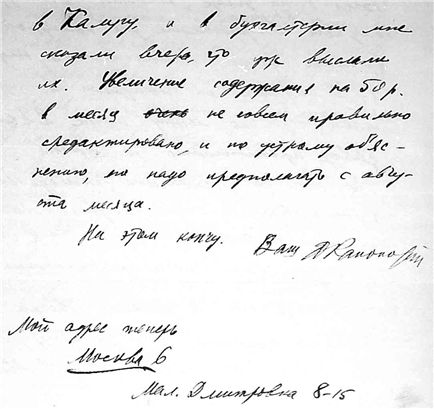 в Калугу, и в бухгалтерии мне
сказали вчера, что уж выслали
их. Увеличение содержания на 50 р.
в месяц очень не совсем правильно
средактировано, и по устному объяс-
нению, то надо предполагать с авгу-
ста месяца.
На этом кончу. Ваш Я Рапопорт
Мой адрес теперь
Москва 6
Мал. Дмитровка 8-15